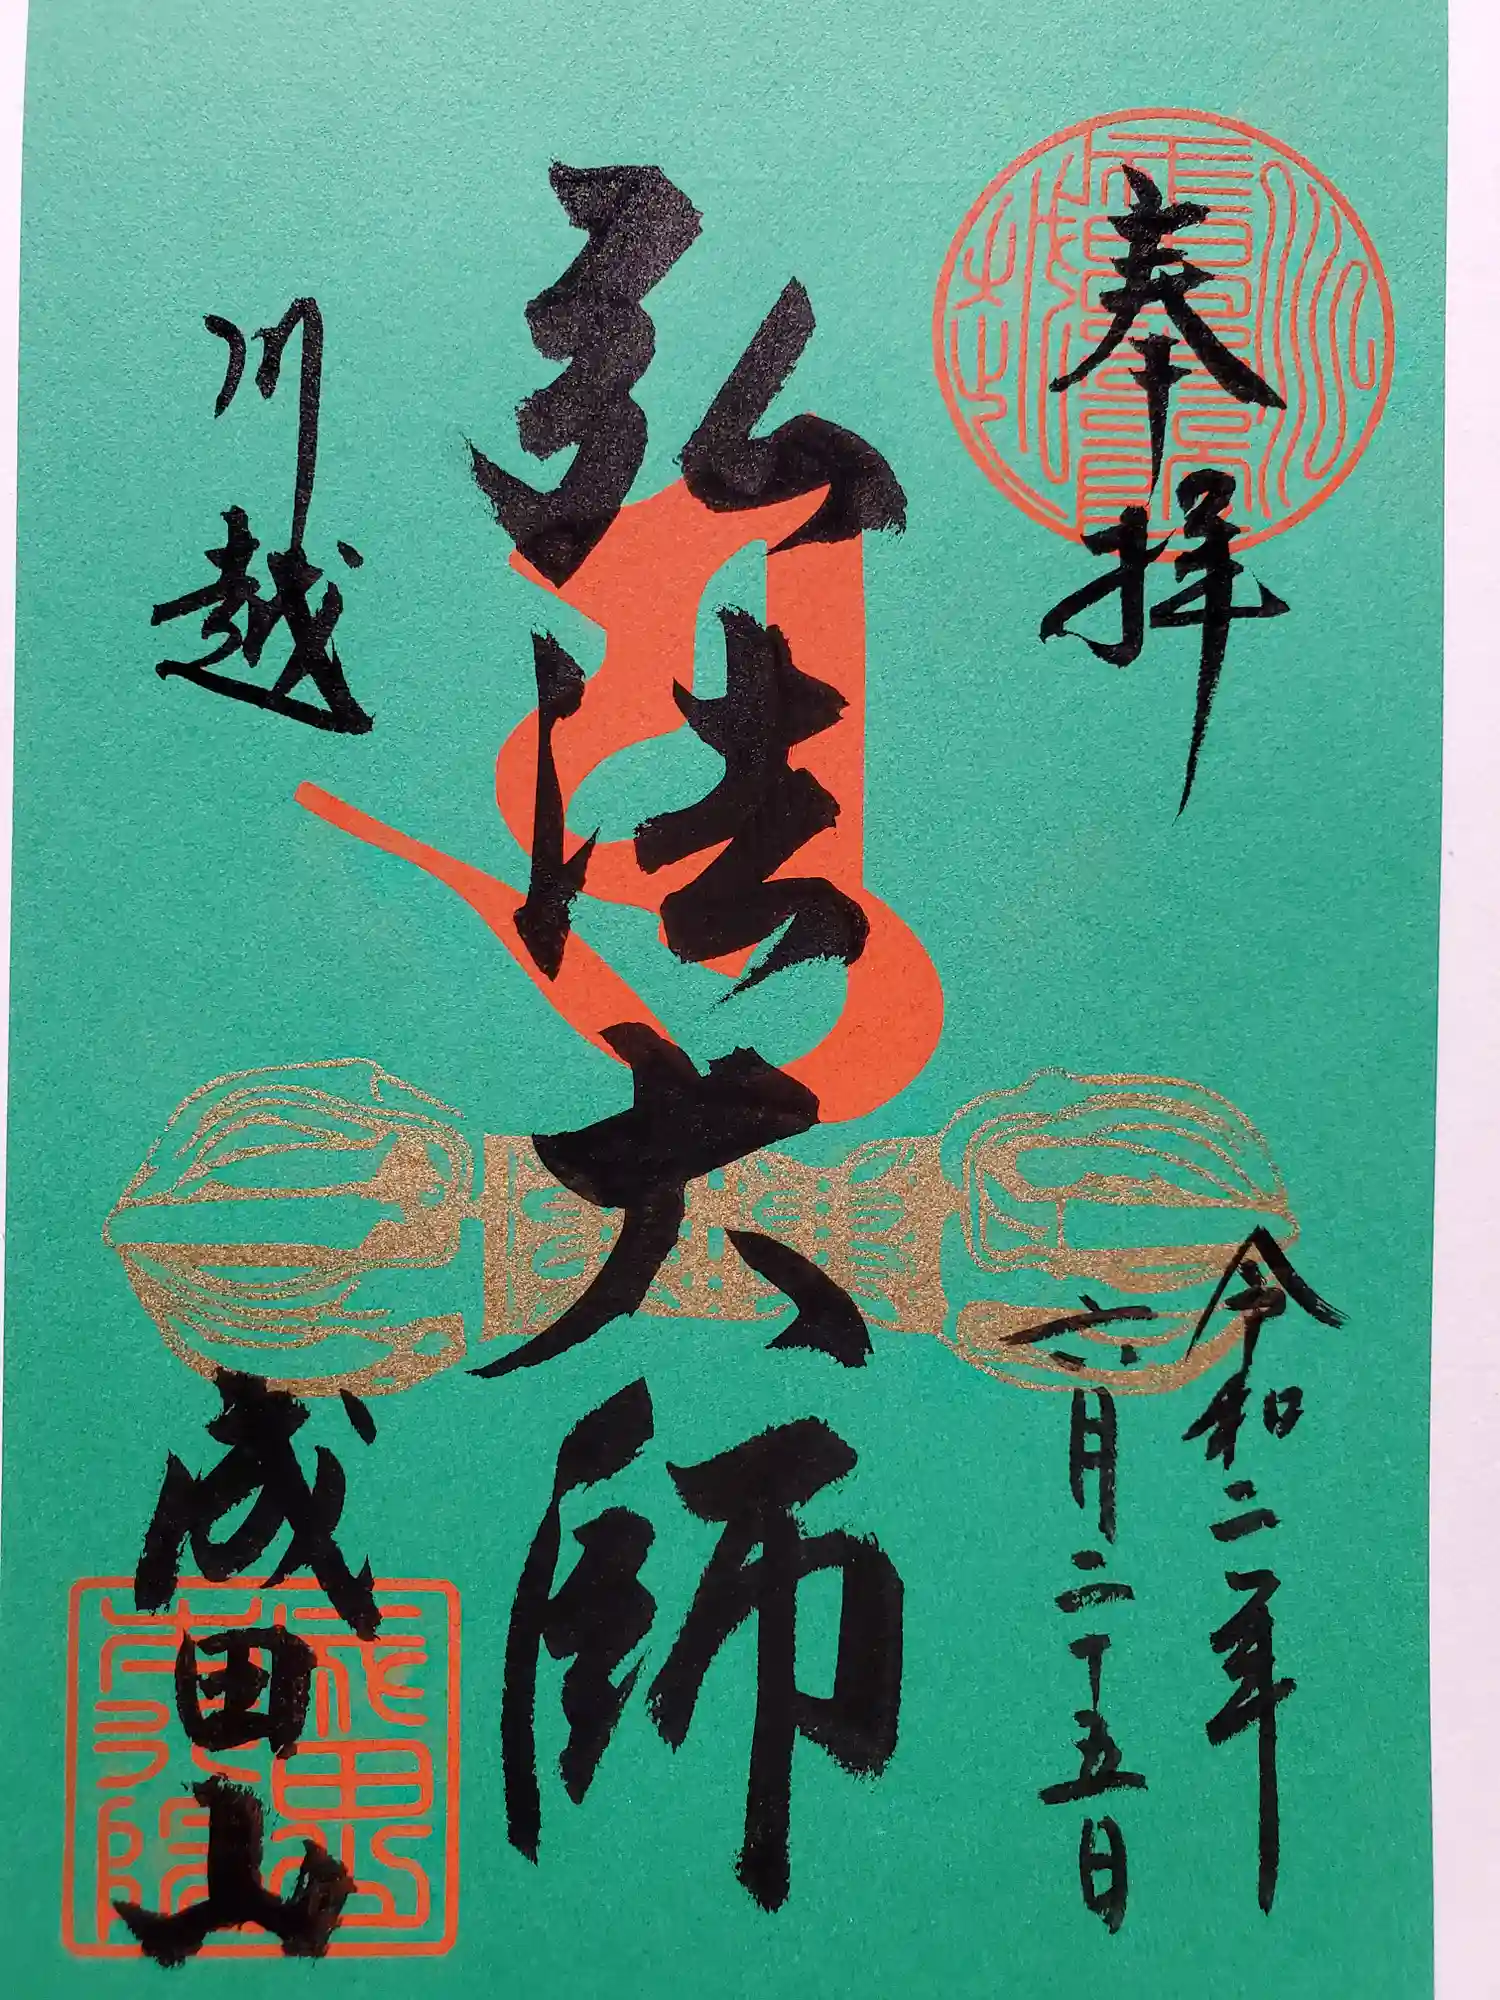 奉拝
令和二年
六月二十五日
弘法大師
川越
成田山